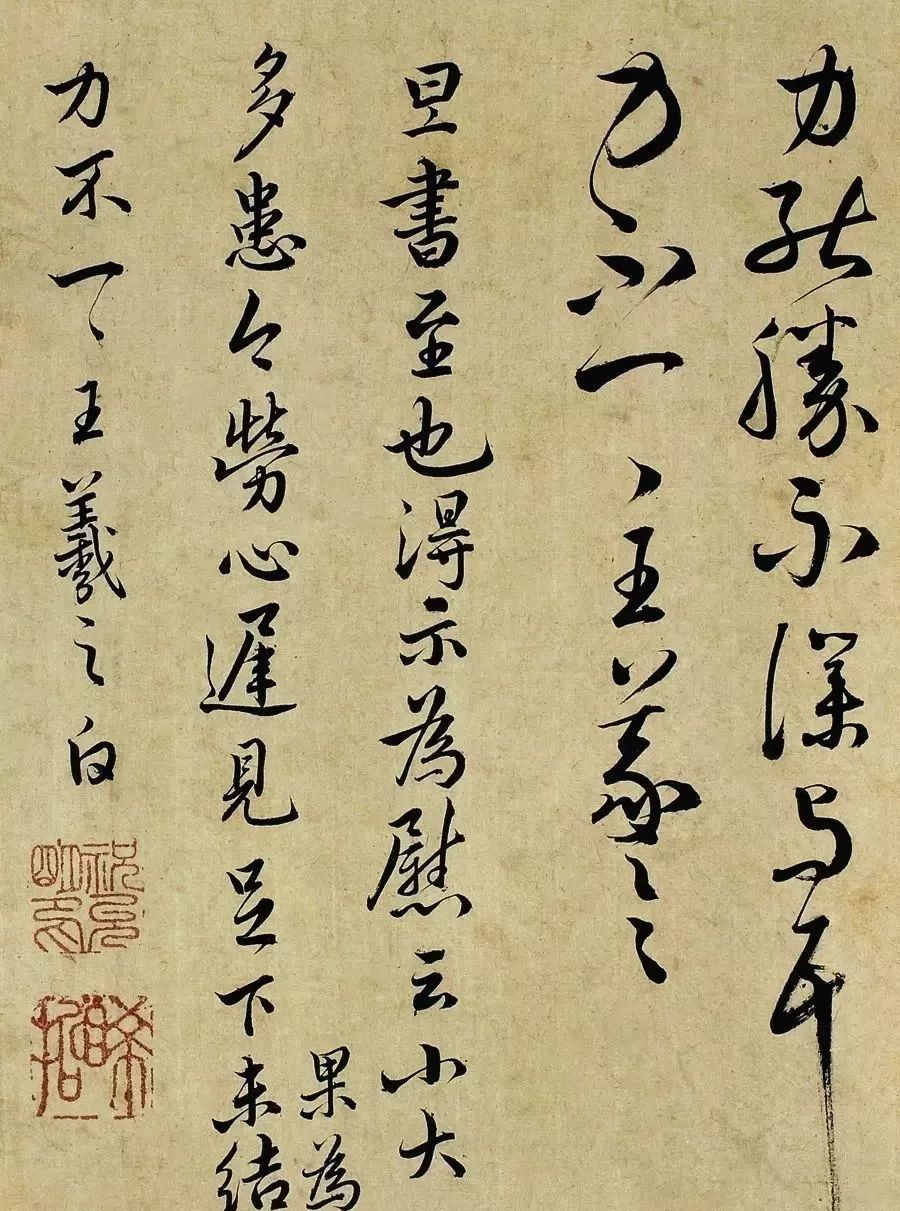 力能勝不深与耳
力不一一王羲之
旦書至也得示為慰云小大
多患念勞心遲見足下未結
果為
力不一一王羲之白
祝允明印